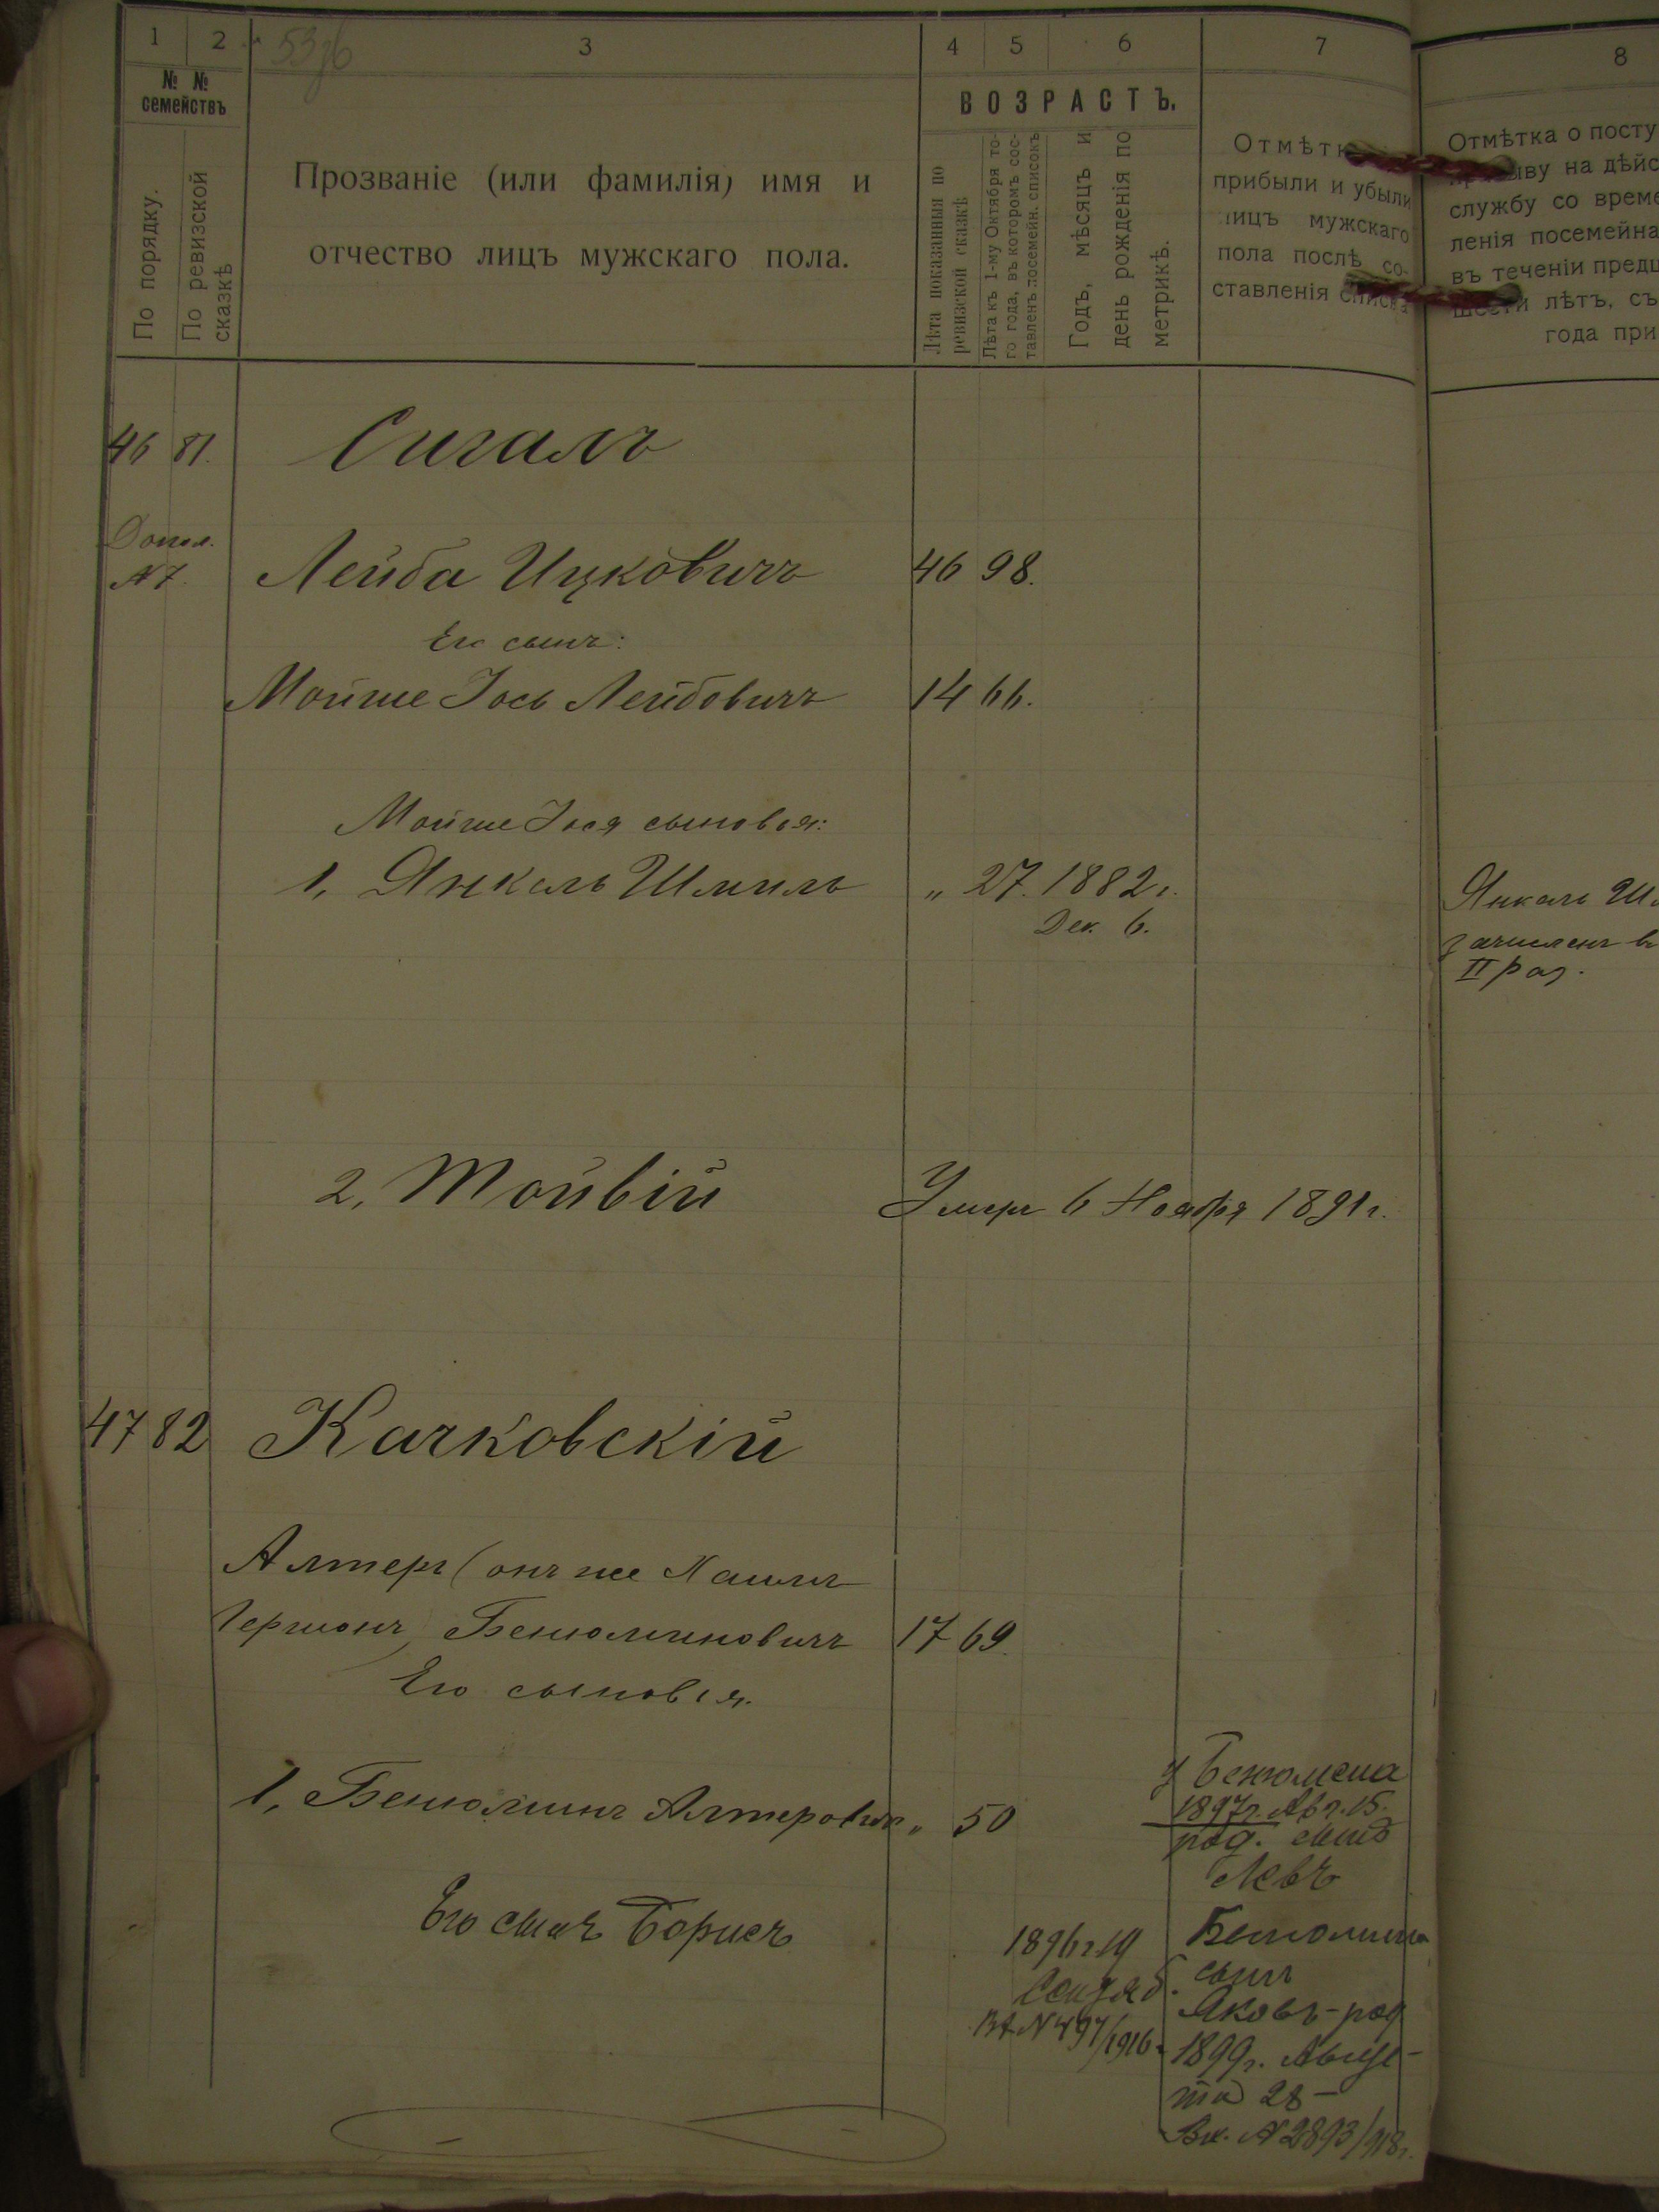 1 2 3 4 5 6 7 8
№ № семействъ
По порядку.
По ревизской сказкѣ
Прозваніе (или фамилія) имя и
отчество лицъ мужскаго пола.
ВОЗРАСТЪ.
Лѣта показанныя по
ревизской сказкѣ
Лѣта къ 1-му Октября то-
го года, въ которомъ сос-
тавленъ посемейн. списокъ
Годъ, мѣсяцъ и
день рожденія по
метрикѣ.
Отмѣтк
прибыли и убыли
лицъ мужскаго
пола послѣ со-
ставленія списка
Отмѣтка о посту
ыву на дѣйс
службу со време
ленія посемейна
въ теченіи предш
шести лѣтъ, съ
года при
46 81. Сигалъ
Допол.
№ 7. Лейба Ицковичъ 46 98.
Его сынъ:
Мойше Іось Лейбовичъ 14 66.
Мойше Іося сыновья:
1, Янкель Шмиль „ 27. 1882 г.
Дек. 6.
Янкель Шм
зачисленъ въ
II раз.
2, Тойвій Умеръ 6 Ноября 1891 г.
47 82 Качковскій
Алтеръ (онъ же Хаимъ
Гершонъ) Бенюминовичъ 17 69.
Его сыновья.
1, Бенюминъ Алтеровичъ „ 50
у Бенюмена
1897 г. Авг. 15.
род. сынъ
Левъ
Его сынъ Борисъ
1896 г 19
Сентяб.
Вх № 497/1916 г
Бенюмина
сынъ
Яковъ - род
1899 г. Авгус-
та 28 -
Вх. № 2893/918 г.